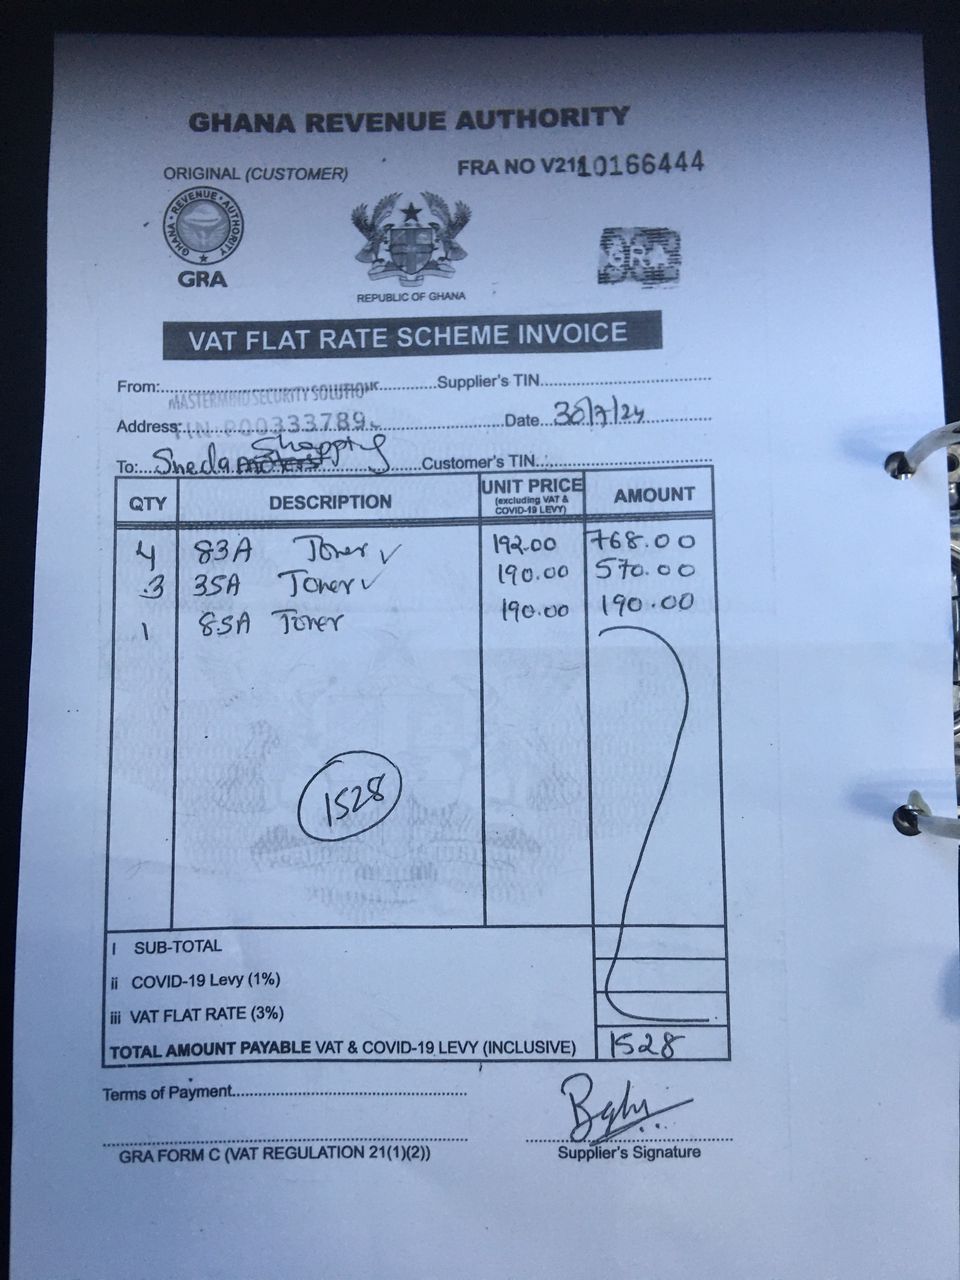 GHANA REVENUE AUTHORITY
ORIGINAL (CUSTOMER)
FRA NO V21 10166444
GHANA · REVENUE · AUTHORITY
GRA
REPUBLIC OF GHANA
GRA
VAT FLAT RATE SCHEME INVOICE
From:.......... Supplier's TIN..........
MASTERMIND SECURITY SOLUTION
Address:.......... Date... 30/7/24
TIN: P00333789
To:... Sheda Shopping .......... Customer's TIN..........
QTY DESCRIPTION UNIT PRICE (excluding VAT & COVID-19 LEVY) AMOUNT
4 83A Toner ✓ 192.00 768.00
3 35A Toner ✓ 190.00 570.00
1 85A Toner 190.00 190.00
1528
i SUB-TOTAL
ii COVID-19 Levy (1%)
iii VAT FLAT RATE (3%)
TOTAL AMOUNT PAYABLE VAT & COVID-19 LEVY (INCLUSIVE) 1528
Terms of Payment..........
GRA FORM C (VAT REGULATION 21(1)(2))
Supplier's Signature